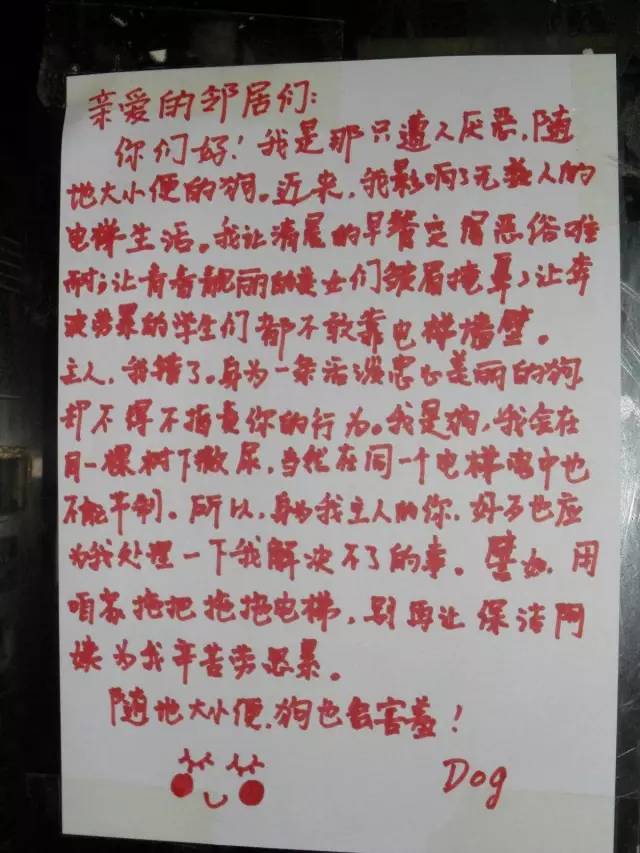 亲爱的邻居们:
你们好！我是那只遭人厌恶,随
地大小便的狗。近来,我影响了无数人的
电梯生活。我让清晨的早餐变得恶俗难
耐;让青春靓丽的美女们皱眉掩鼻;让奔
波劳累的学生们都不敢靠电梯墙壁。
主人,我错了。身为一条活泼忠心美丽的狗,
却不得不指责你的行为。我是狗,我会在
同一棵树下撒尿,当然在同一个电梯当中也
不能节制。所以,身为我主人的你,好歹也应
为我处理一下我解决不了的事。譬如,用
咱家拖把拖拖电梯,别再让保洁阿
姨为我辛苦劳累。
随地大小便,狗也会害羞！
Dog